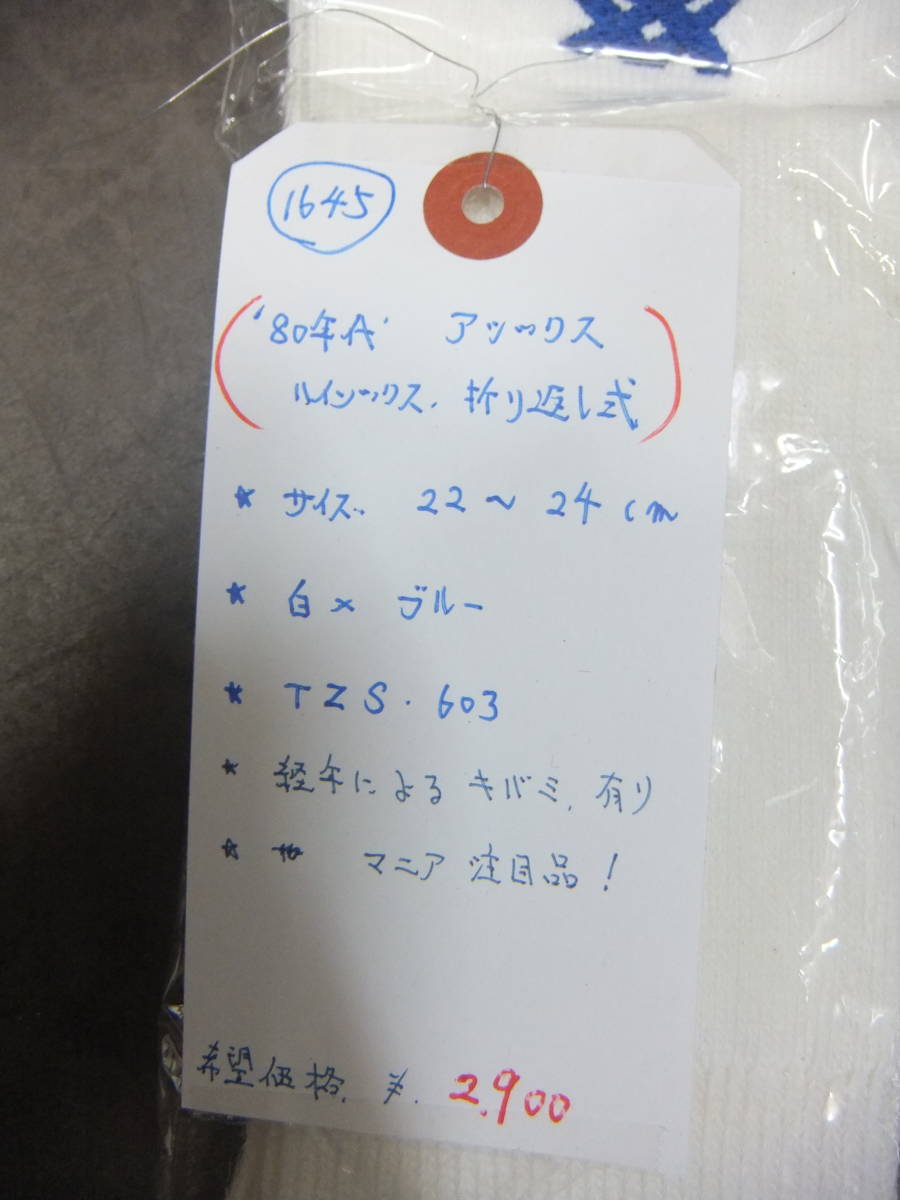 1645
('80年A' アシックス
ハイソックス. 折り返し式)
* サイズ. 22～24cm
* 白× ブルー
* TZS.603
* 経年による キバミ, 有り
* マニア 注目品!
希望価格. ¥. 2,900